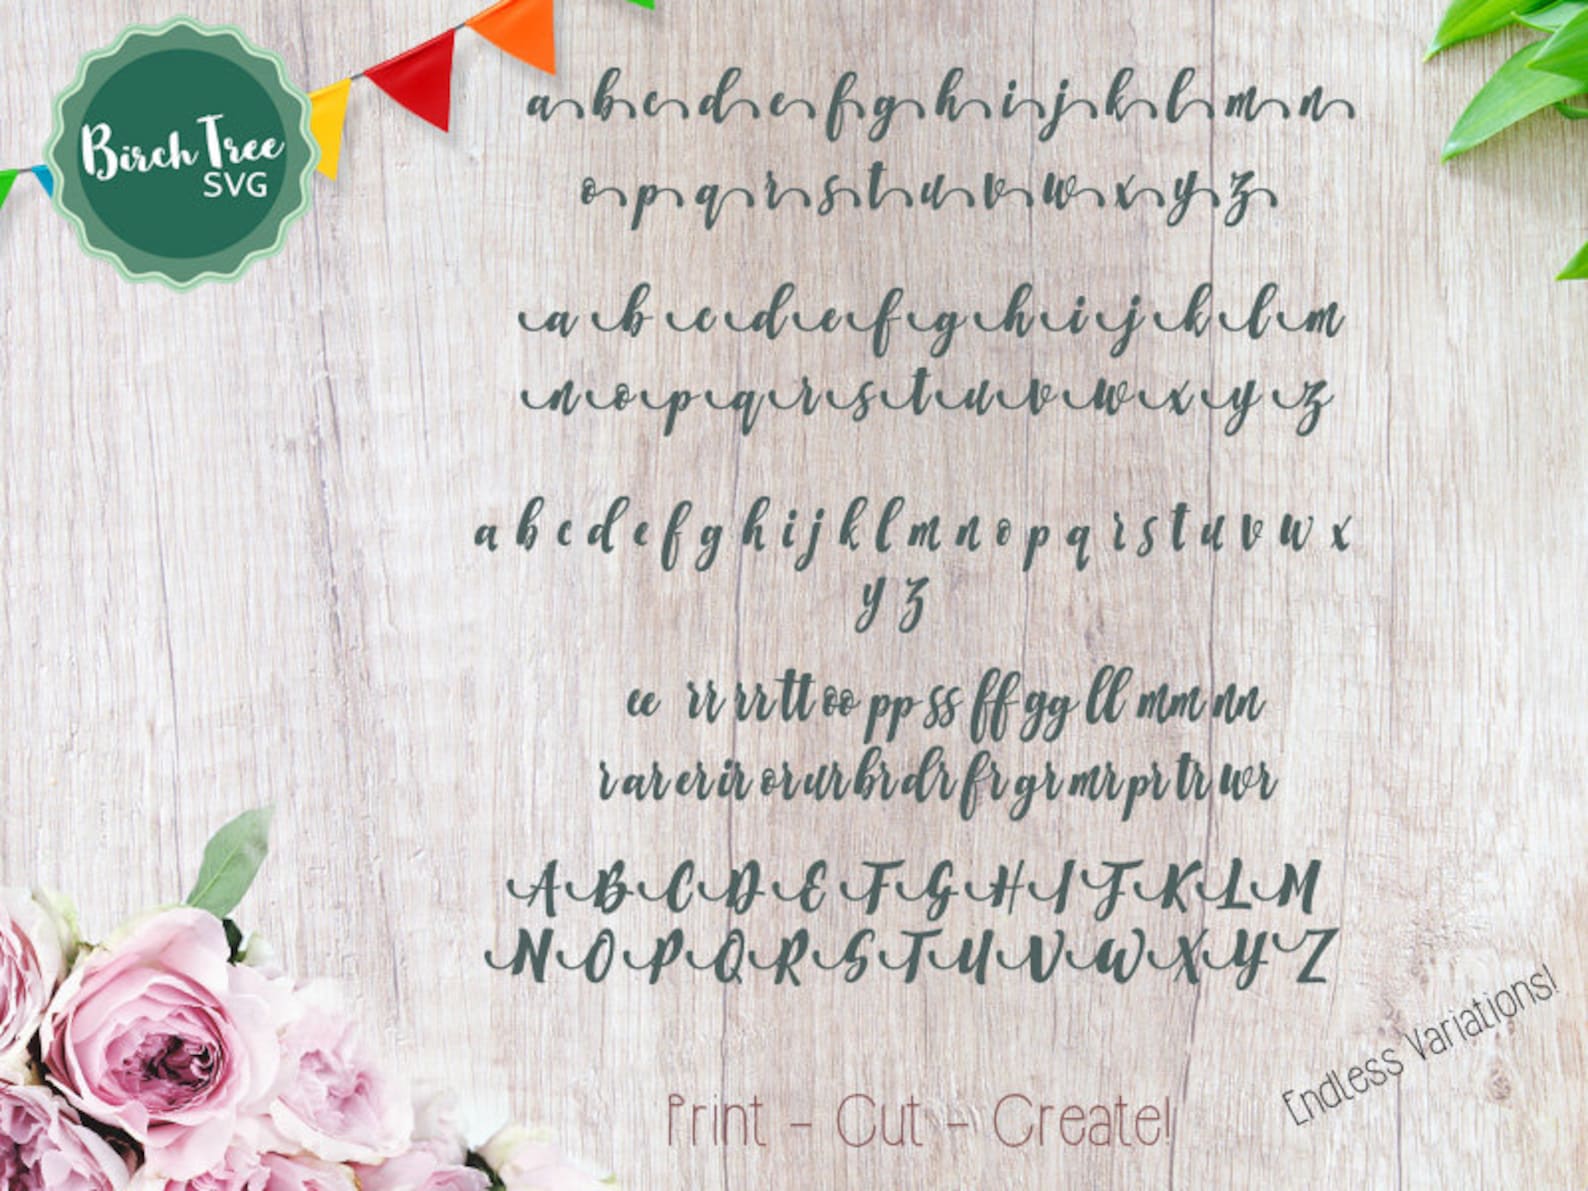 Birch Tree
SVG
a b c d e f g h i j k l m n
o p q r s t u v w x y z
a b c d e f g h i j k l m
n o p q r s t u v w x y z
a b c d e f g h i j k l m n o p q r s t u v w x
y z
ee rr rr tt oo pp ss ff gg ll mm nn
r ar er ir or ur br dr fr gr mr pr tr wr
A B C D E F G H I J K L M
N O P Q R S T U V W X Y Z
Endless Variations!
Print - Cut - Create!